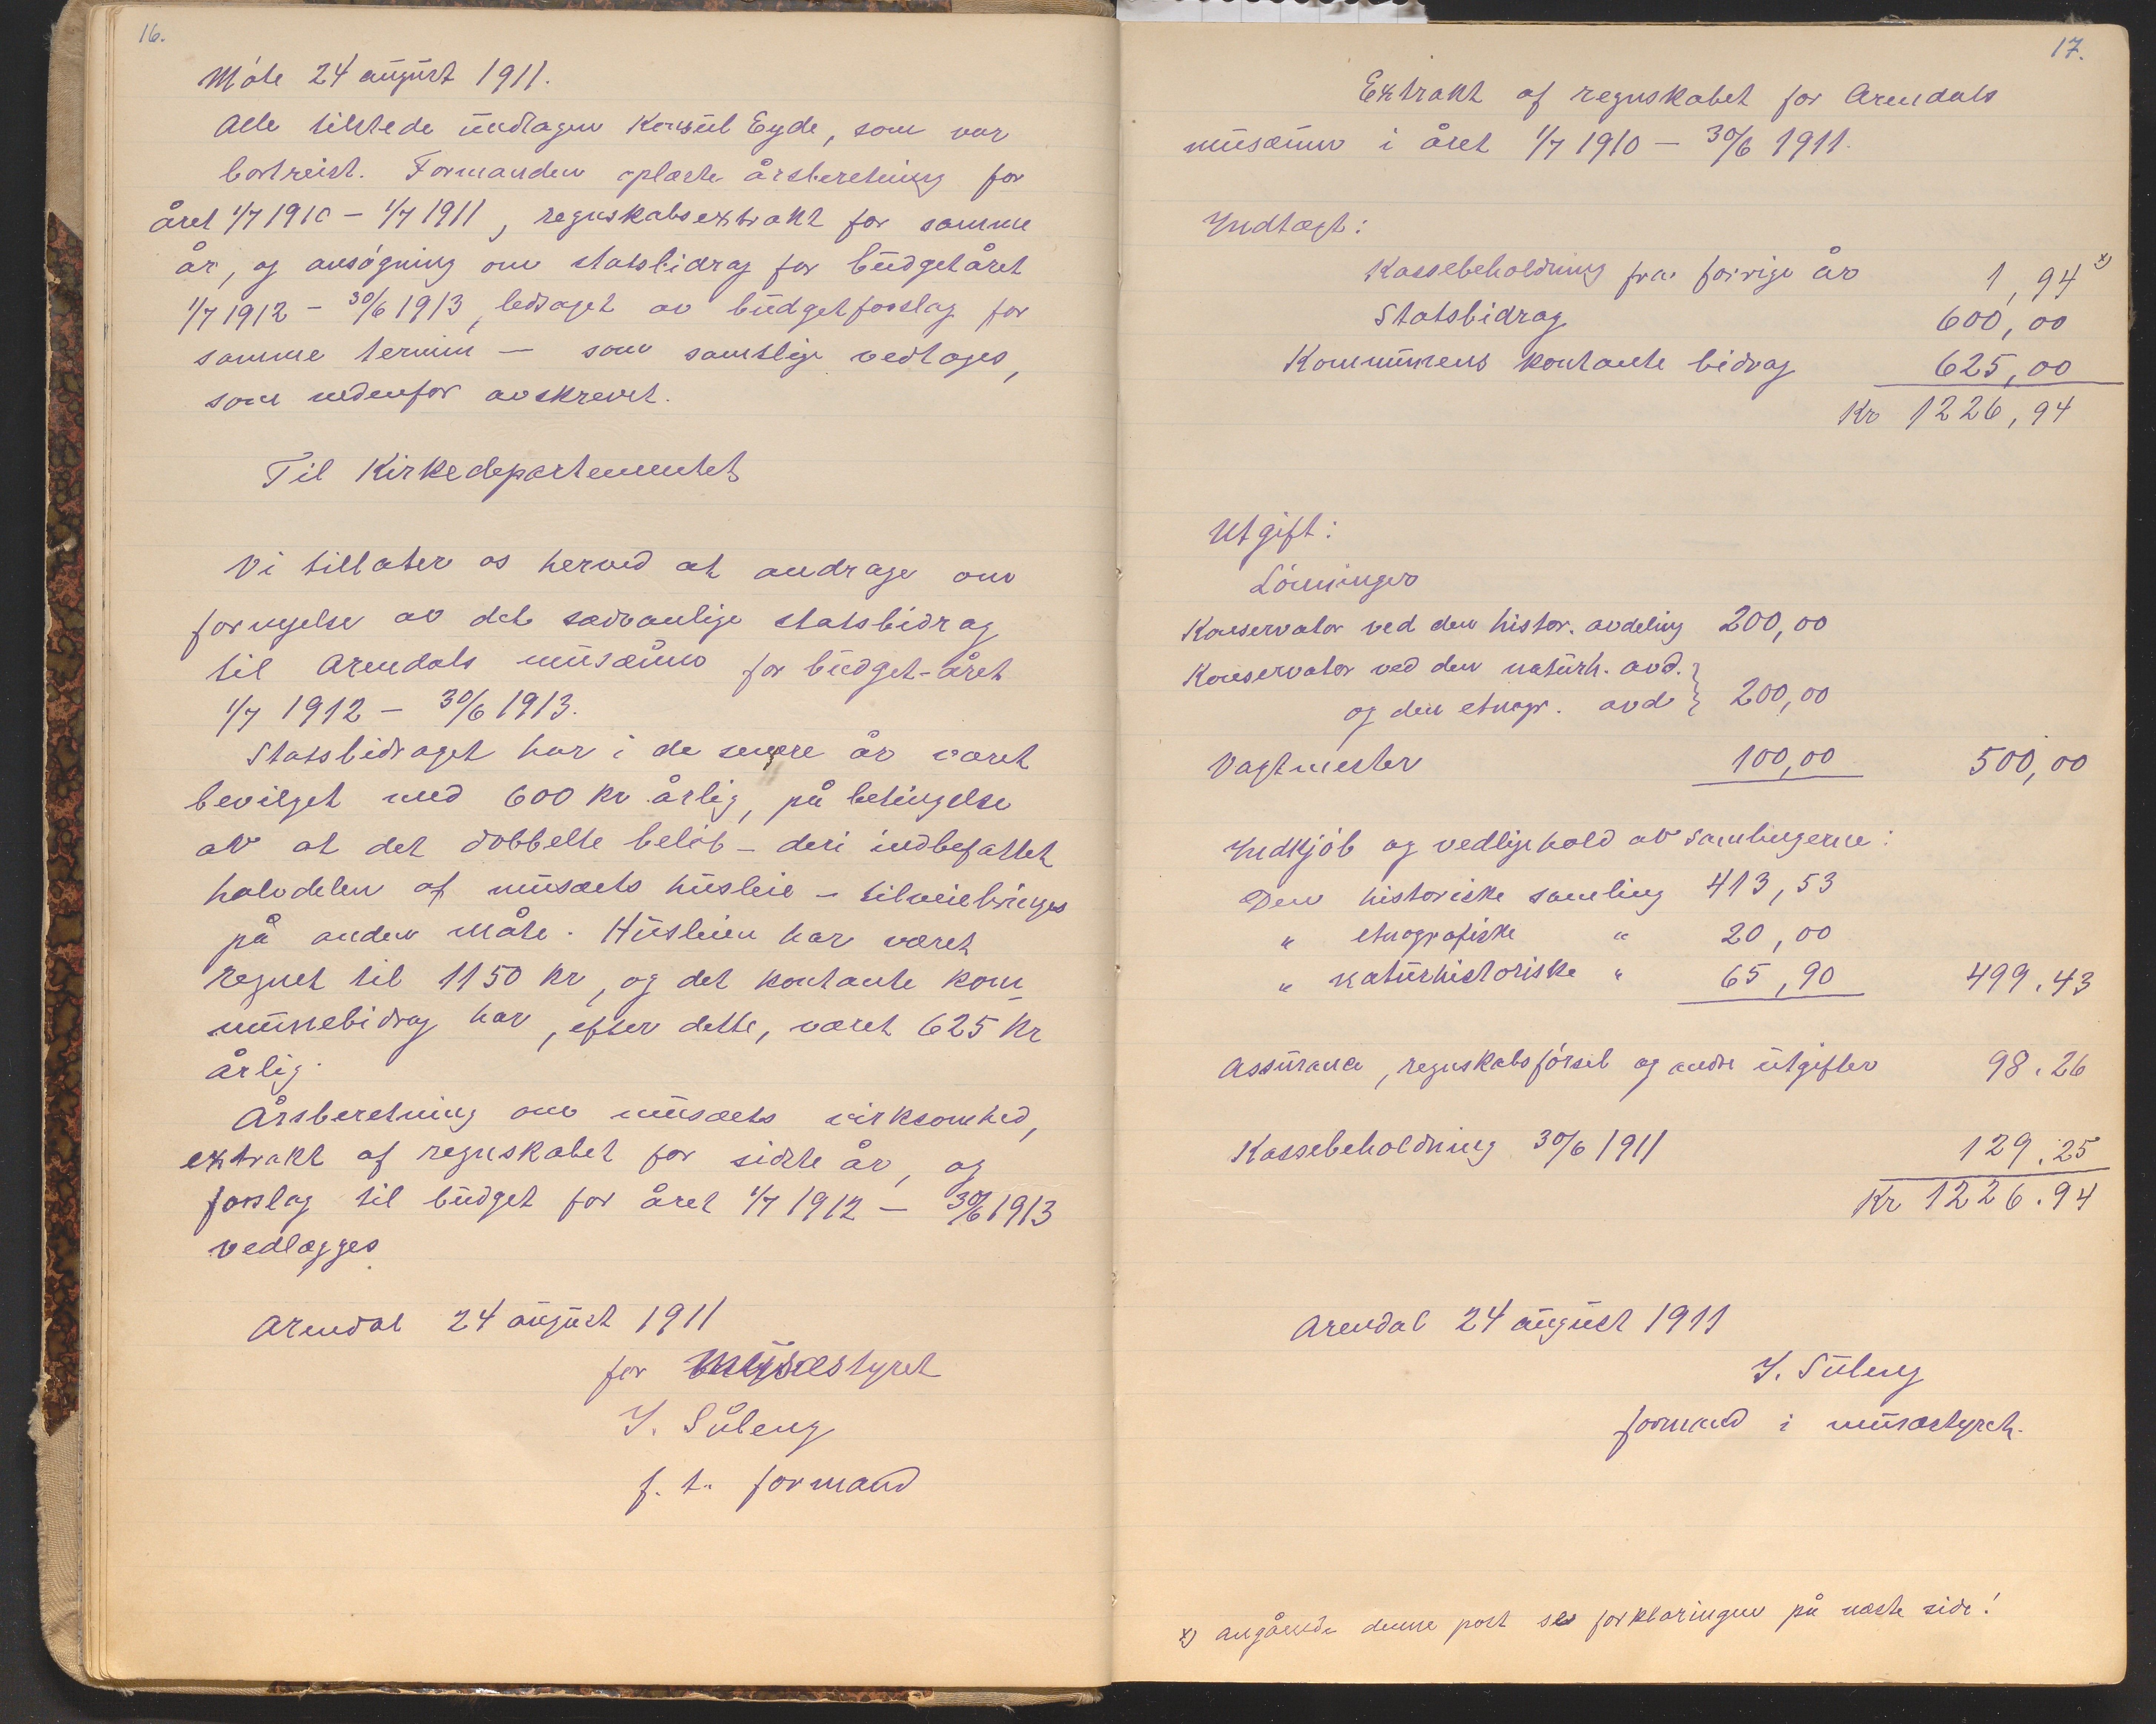 16.
Møte 24 august 1911.
Alle tilstede undtagen Konsul Eyde, som var
bortreist. Formanden oplæste årsberetning for
året 1/7 1910 – 1/7 1911, regnskabsextrakt for samme
år, og ansøgning om statsbidrag for budgetåret
1/7 1912 – 30/6 1913, ledsaget av budgetforslag for
samme termin – som samtlige vedtoges,
som nedenfor avskrevet.
Til Kirkedepartementet
Vi tillater os herved at andrage om
fornyelse av det sedvanlige statsbidrag
til Arendals musæum for budget-året
1/7 1912 – 30/6 1913.
Statsbidraget har i de senere år været
bevilget med 600 kr årlig, på betingelse
av at det dobbelte beløb – deri indbefattet
halvdelen af musæets husleie – tilveiebringes
på anden måte. Husleien har været
regnet til 1150 kr, og det kontante kom-
munebidrag har, efter dette, været 625 kr
årlig.
Årsberetning om musæets virksomhed,
extrakt af regnskabet for sidste år, og
forslag til budget for året 1/7 1912 – 30/6 1913
vedlægges.
Arendal 24 august 1911
for musæstyret
I. Søleng
f. t. formand
17.
Extrakt af regnskabet for Arendals
musæum i året 1/7 1910 – 30/6 1911.
Indtægt:
Kassebeholdning fra forrige år 1,94 x)
Statsbidrag 600,00
Kommunens kontante bidrag 625,00
Kr 1226,94
Utgift:
Lønninger
Konservator ved den histor. avdeling 200,00
Konservator ved den naturh. avd. }
og den etnogr. avd } 200,00
Vagtmester 100,00 500,00
Indkjøb og vedligehold av samlingerne:
Den historiske samling 413,53
" etnografiske " 20,00
" naturhistoriske " 65,90 499.43
Assurance, regnskabsførsel og andre utgifter 98.26
Kassebeholdning 30/6 1911 129.25
Kr 1226.94
Arendal 24 august 1911
I. Søleng
formand i musæstyret.
x) angående denne post se forklaringen på næste side!